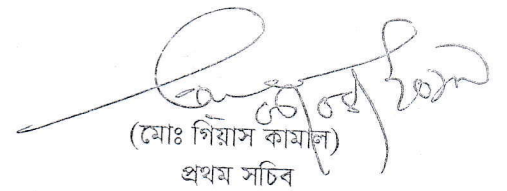 (মোঃ গিয়াস কামাল)
প্রথম সচিব